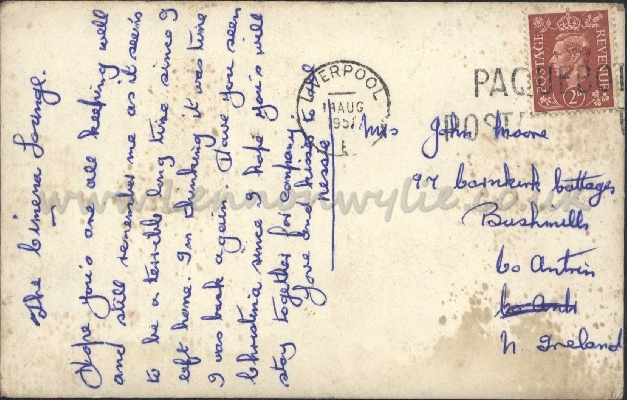 The Cinema Lounge.
Hope you's are all keeping well
and still remember me as it seems
to be a terrible long time since I
left home. I'm thinking it was time
I was back again. Have you seen
Christina since I hope you's will
stay together for company.
Love and kisses to all
Nessie
POSTAGE REVENUE
2D
LIVERPOOL
AUG
1951
PAQUEBOT
Mrs John Moore
97 Carnkirk Cottages
Bushmills
Co Antrim
N Ireland
www.Lennonwylie.co.uk